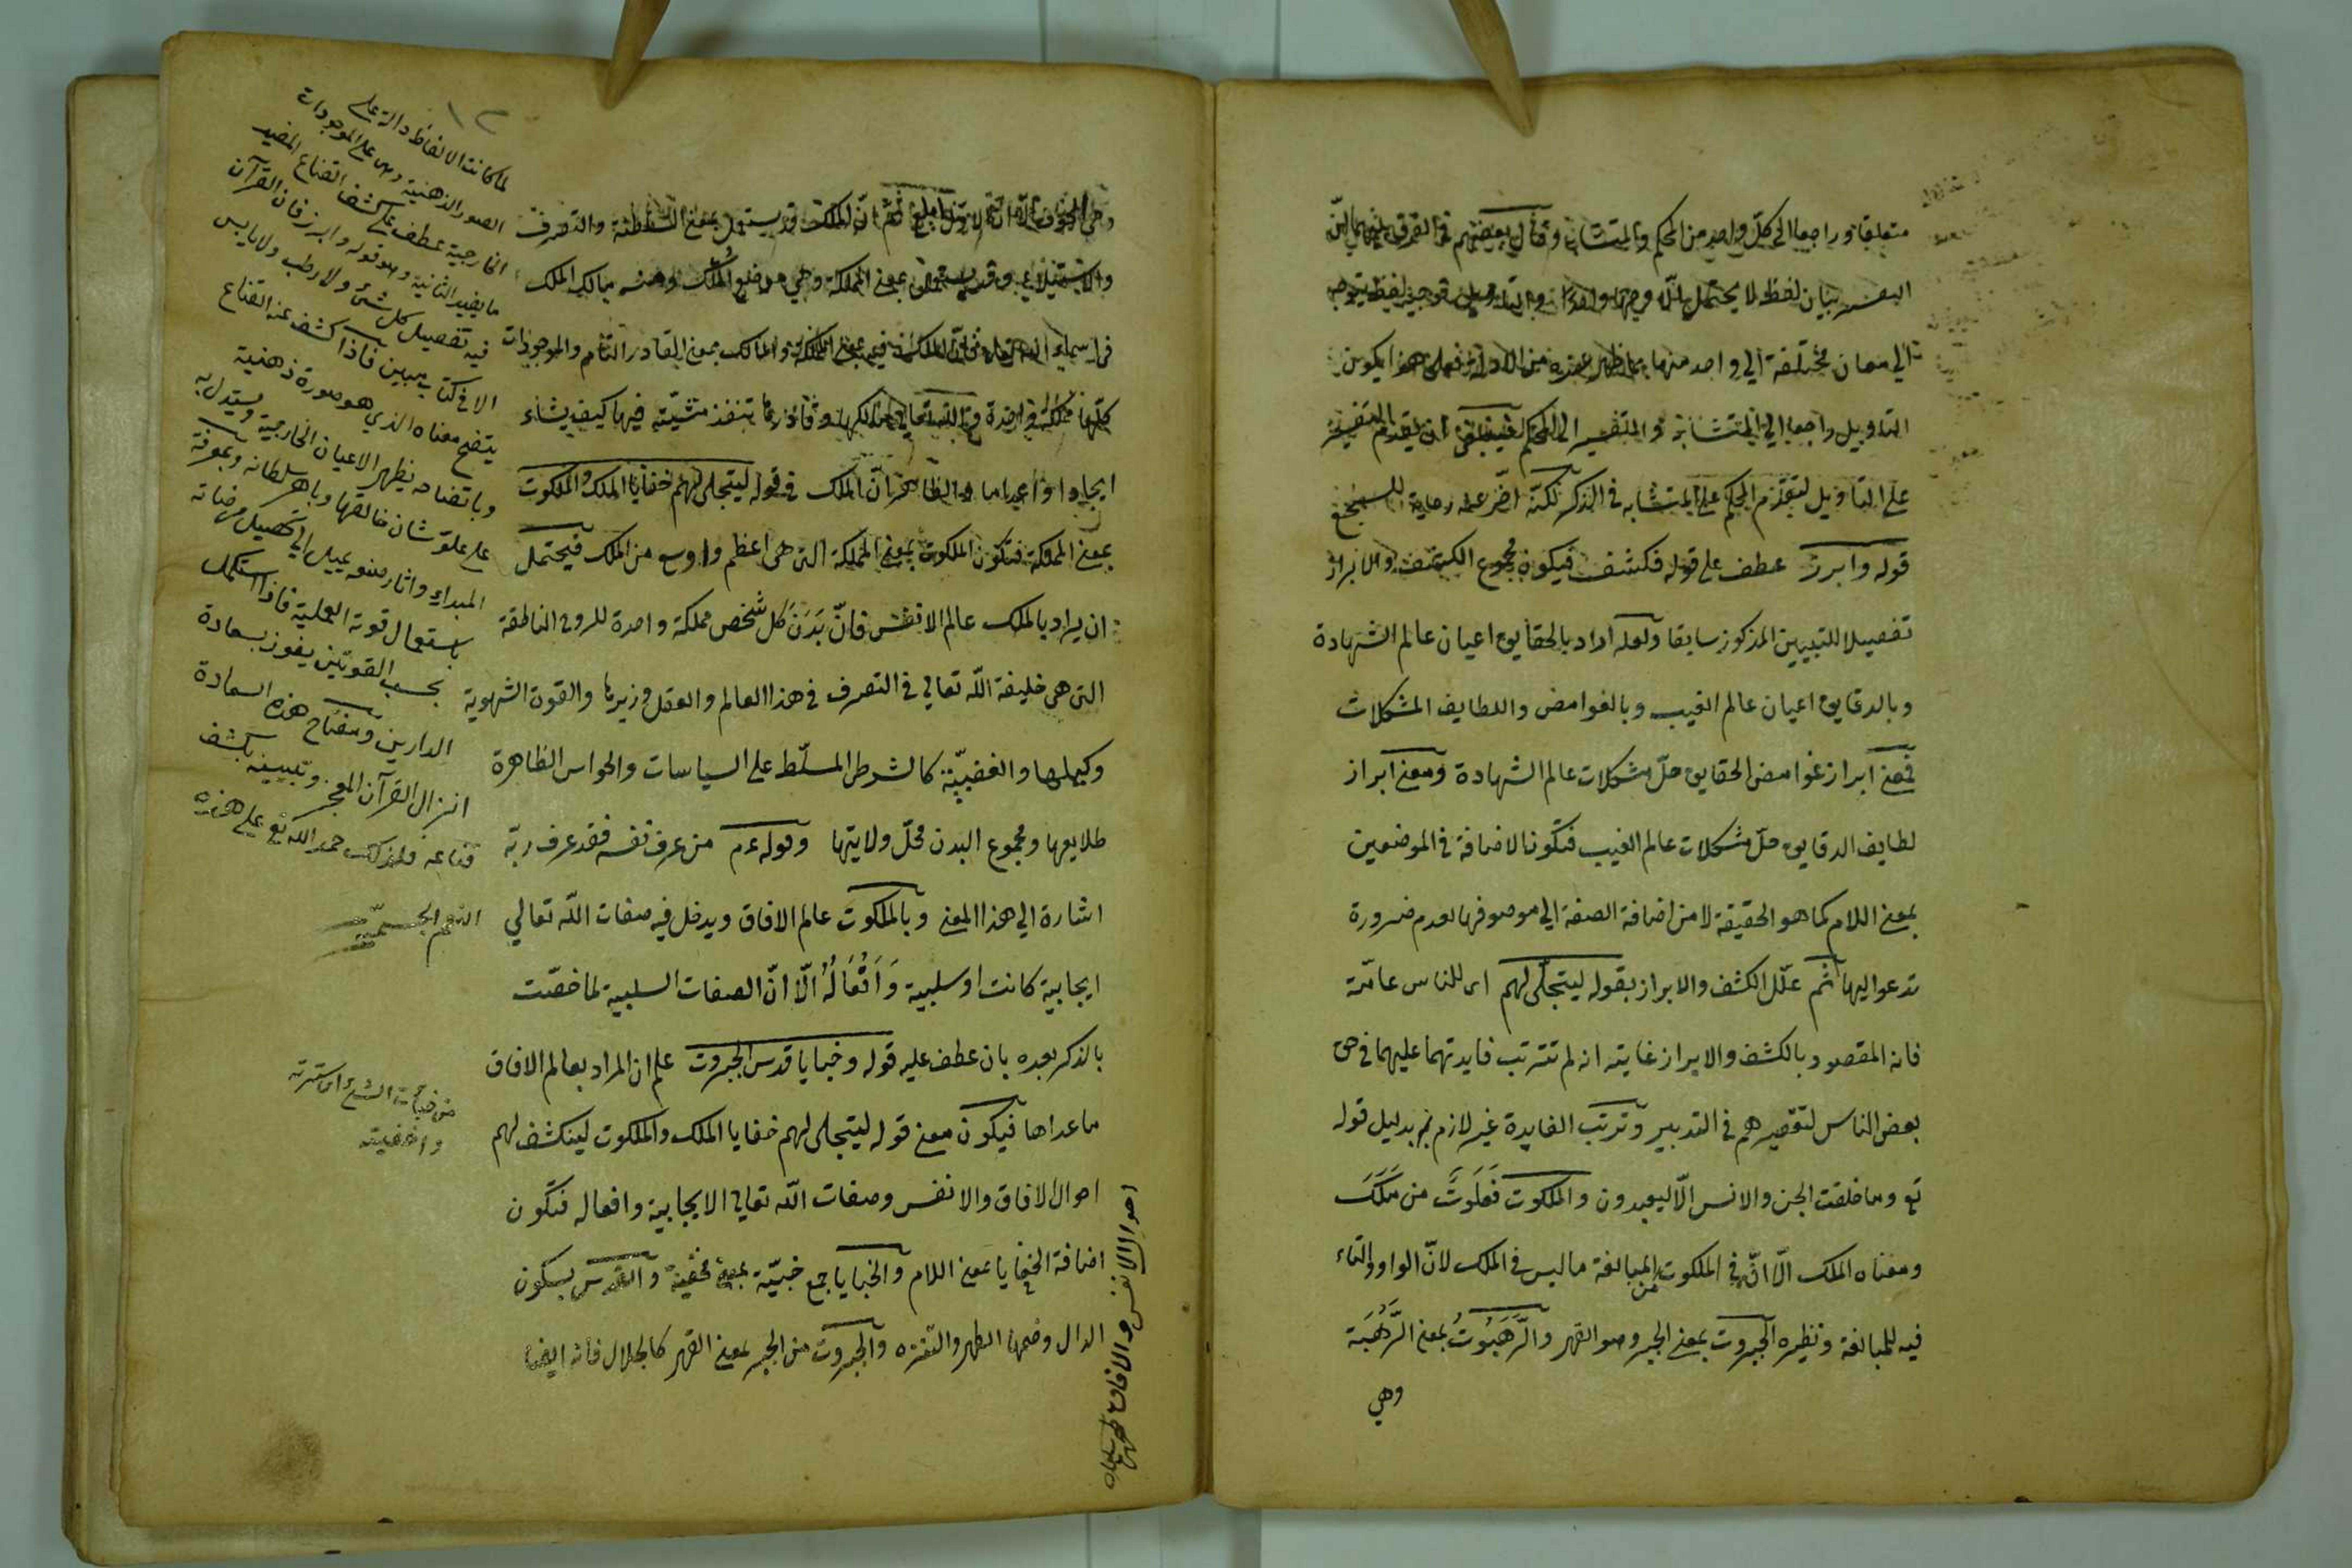 متعلقا وراجعا الى كلّ واحد من المحكم والمتشابه وقال بعضهم في الفرق بينهما انّ
التفسير بيان لفظ لا يحتمل الّا وجها واحدا والتاويل توجيه لفظ يتوجه
الي معان مختلفة الي واحد منها بما ظهر عنده من الادلة فعلى هذا يكون
التاويل راجعا الي المتشابه والتفسير الى المحكم فينبغي ان يقدم التفسير
على التاويل لتقدّم المحكم على المتشابه في الذكر لكنّه اخّر عنه رعاية للسجع
قوله وابرز عطف على قوله فكشف فيكون مجموع الكشف والابراز
تفصيلا للتبيين المذكور سابقا ولعله اراد بالحقايق اعيان عالم الشهادة
وبالدقايق اعيان عالم الغيب وبالغوامض واللطايف المشكلات
فمعنى ابراز غوامض الحقايق حلّ مشكلات عالم الشهادة ومعنى ابراز
لطايف الدقايق حلّ مشكلات عالم الغيب فتكون الاضافة في الموضعين
بمعنى اللام كما هو الحقيقة لا من اضافة الصفة الي موصوفها لعدم ضرورة
تدعو اليها ثم علّل الكشف والابراز بقوله ليتجلّى لهم اى للناس عامّة
فانه المقصود بالكشف والابراز غايته انه لم تترتب فايدتهما عليهما في حق
بعض الناس لتقصيرهم في التدبير وترتب الفايدة غير لازم بدليل قوله
تع وما خلقت الجن والانس الّا ليعبدون والملكوت فَعَلَوتٌ من مَلَكَ
ومعناه الملك الّا انّ في الملكوت من المبالغة ما ليس في الملك لانّ الواو والتاء
فيه للمبالغة ونظيره الجبروت بمعنى الجبر وهو القهر والرَّهَبُوتُ بمعنى الرَّهْبَة
وهي
١٢
وهي الخوف ثم انّ الملك قد يستعمل بمعنى السلطنة والتصرف
والاستيلاء وقد يستعمل بمعنى المملكة وهي موضع المُلك ومنه مالك الملك
في اسماء الله تعالى فانّ الملك فيه بمعنى المملكة والمالك بمعنى القادر التام والموجودات
كلّها مملكة واحدة والله تعالى مالكها وقادرها تنفذ مشيّته فيها كيف يشاء
ايجادا واعداما والظاهر انّ الملك في قوله ليتجلى لهم خفايا الملك والملكوت
بمعنى المملكة فتكون الملكوت بمعنى المملكة التى هى اعظم واوسع من الملك فيحتمل
ان يراد بالملك عالم الانفس فانّ بَدَنَ كل شخص مملكة واحدة للروح الناطقة
التى هى خليفة اللّه تعالي في التصرف في هذا العالم والعقل وزيرها والقوة الشهوية
وكيلها والغضبيّة كالشرطى المسلّط على السياسات والحواس الظاهرة
طلايعها ومجموع البدن محلّ ولايتها وقوله ءم من عرف نفسه فقد عرف ربّه
اشارة الي هذا المعنى وبالملكوت عالم الافاق ويدخل فيه صفات اللّه تعالي
ايجابية كانت او سلبية وَاَفْعَالُهُ الّا انّ الصفات السلبية لما خصّت
بالذكر بعده بان عطف عليه قوله وخبايا قدس الجبروت علم ان المراد بعالم الافاق
ما عداها فيكون معنى قوله ليتجلى لهم خفايا الملك والملكوت لينكشف لهم
احوال الافاق والانفس وصفات اللّه تعالى الايجابية وافعاله فتكون
اضافة الخفايا بمعنى اللام والخبايا جمع خبيّة بمعنى مخفيّة والقدس بسكون
الدال وضمها الطهر والتنزه والجبروت من الجبر بمعنى القهر كالجلال فانه ايضا
لما كانت الالفاظ دالة على
الصور الذهنية وهى على الموجودات
الخارجية عطف على كشف القناع المفيد
ما يفيد الثانية وهو قوله وابرز فان القرآن
فيه تفصيل كل شئ ولا رطب ولا يابس
الا في كتاب مبين فاذا كشف عنه القناع
يتضح معناه الذي هو صورة ذهنية
وباتضاحه يظهر الاعيان الخارجية ويستدل به
على علوّ شان خالقها وباهر سلطانه وبمعرفة
المبداء واثار صنعه يميل الي تحصيل مرضاته
باستعمال قوته العملية فاذا استكمل
بحسب القوتين يفوز بسعادة
الدارين ومفتاح هذه السعادة
انزال القرآن المعجز وتبيينه بكشف
قناعه فلذلك حمد الله تع على هذه
النعم الجسيمة
من خبأت الشئ اى سترته
واخفيته
احوال الانفس والافاق